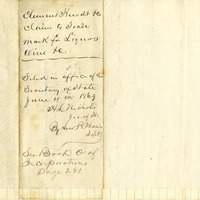 Clement Hendt &c
Claim to Trade
mark for Liquors
Wine &c.
Filed in office of the
Secretary of State
June 1st 1869
H. L. Nichols
Sec of St.
By Lew B. Harris
Dpty
See Book C of
Incorporations
Page 251